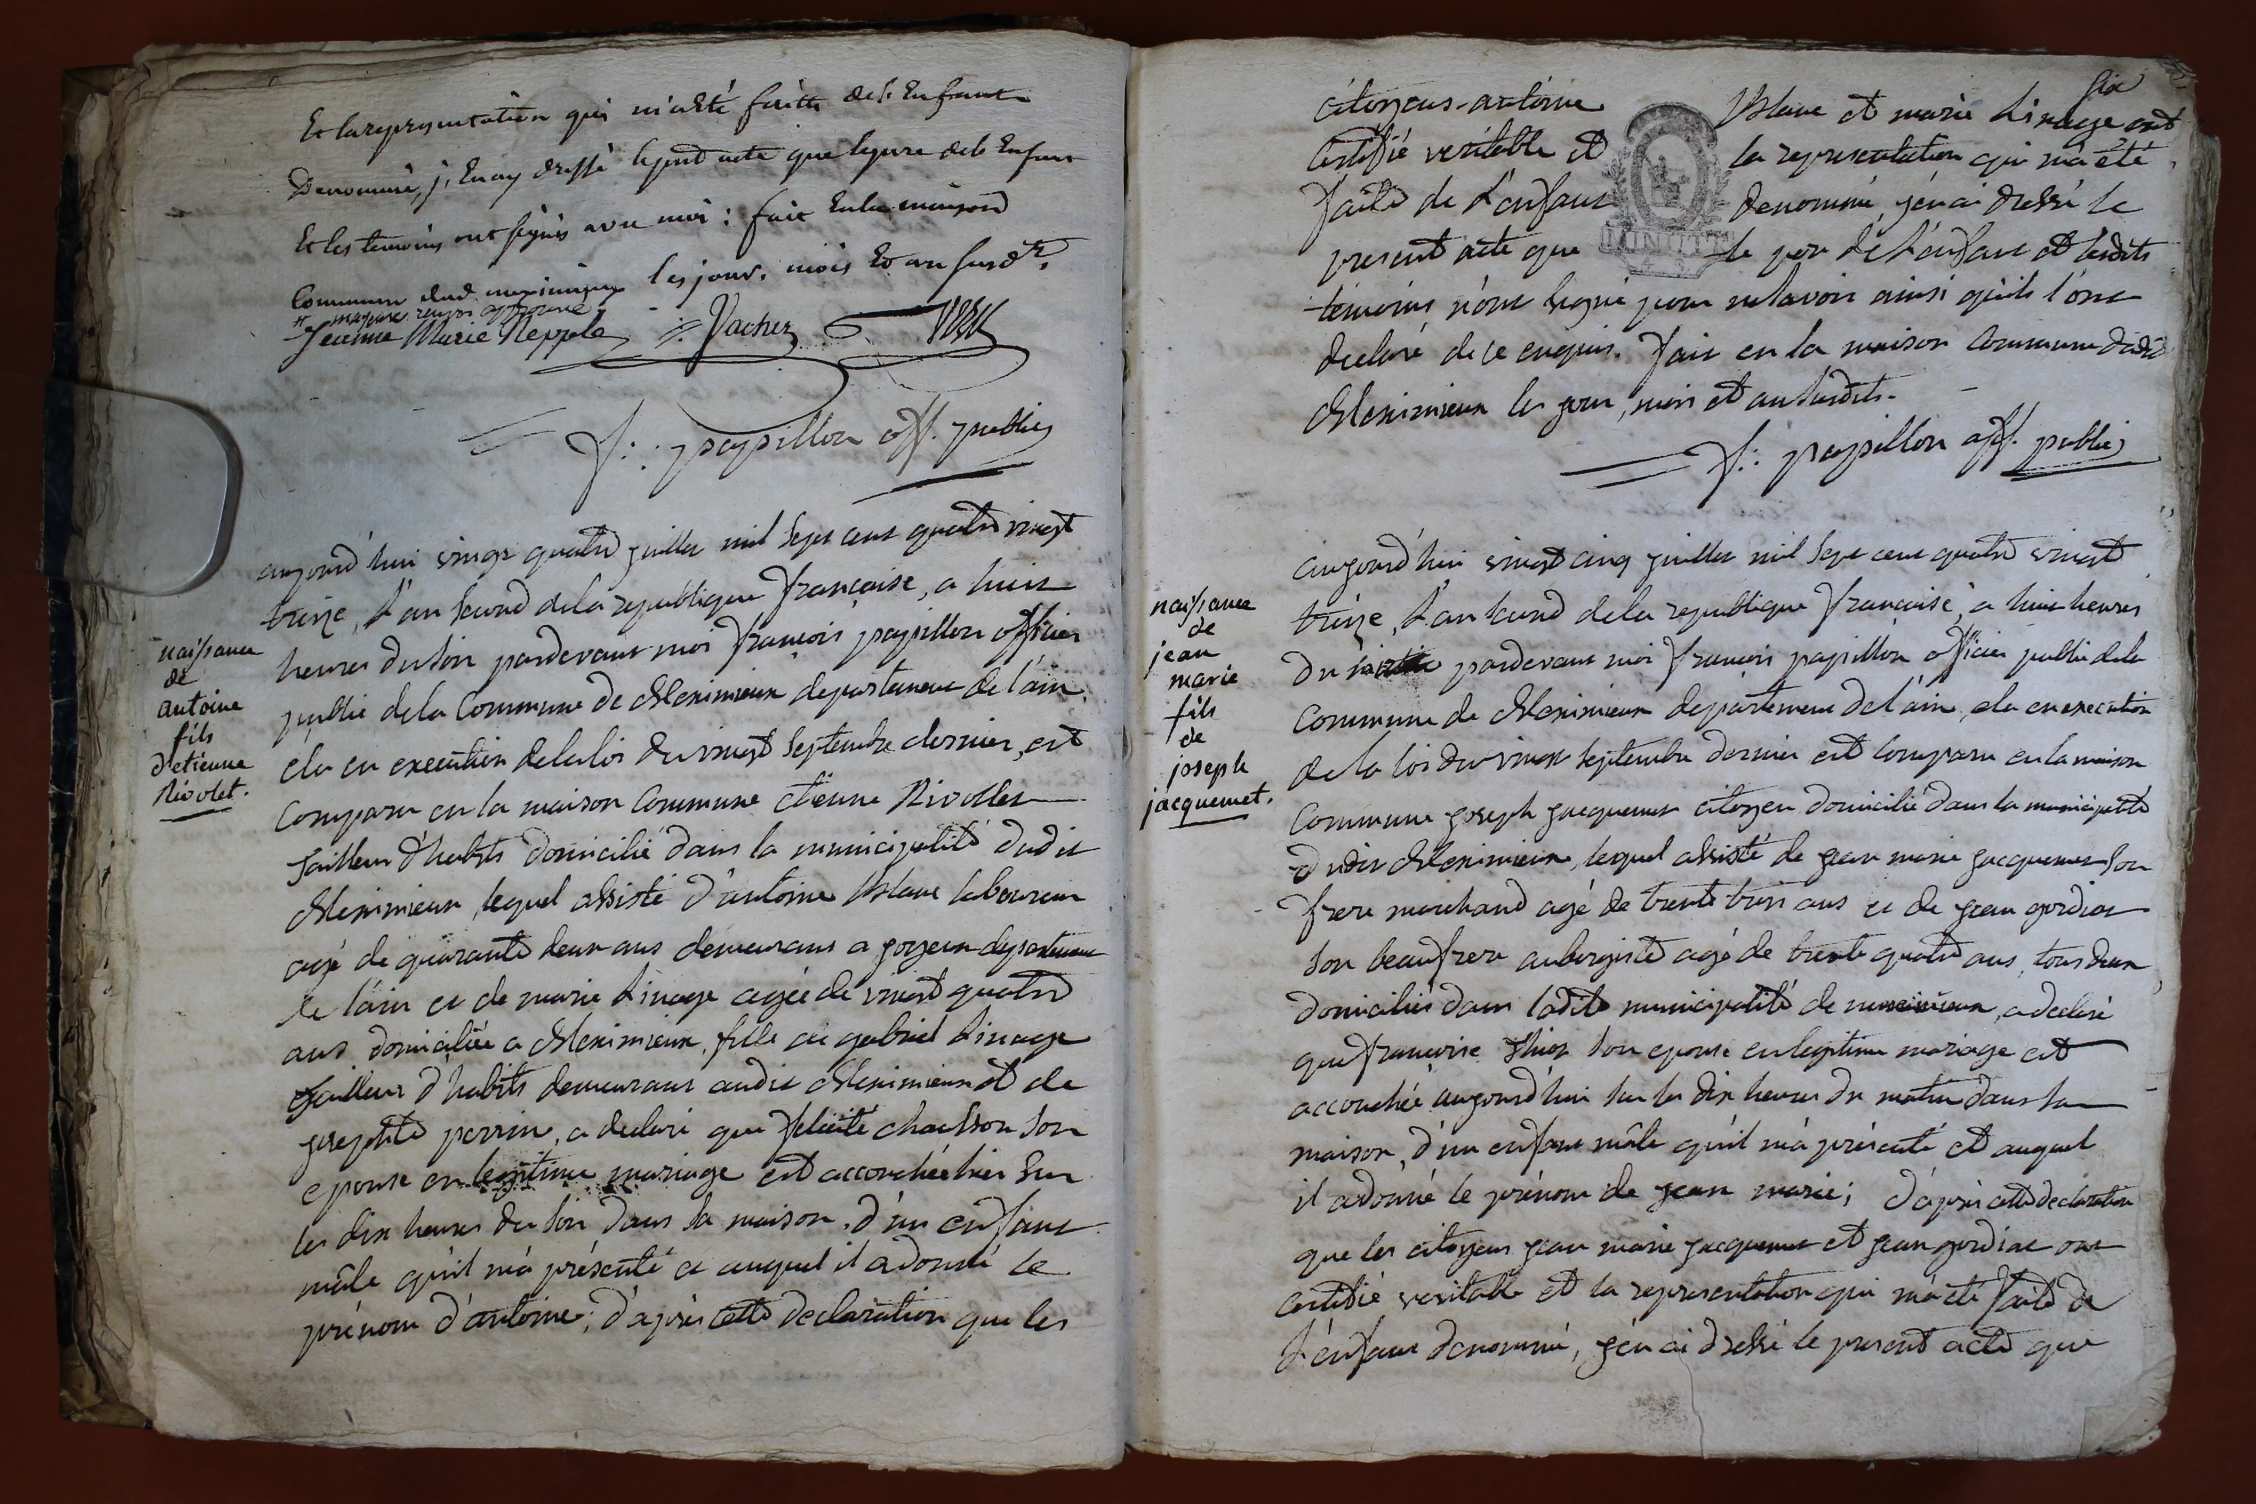 Et la representation qui m'a eté faitte dele Enfant
Denommé, j'En ay dressé le prnt acte que le pere dele Enfant
Et les temoins ont signés avec moi : fait En la maison
Commune dud meximieux les jour, mois Et an susdts.
Jeanne Marie Neppele Vacher
f: papillon off. public
aujourd'hui vingt quatre juillet mil sept cent quatre vingt
treize, l'an second de la republique française, a huit
heures du soir pardevant moi françois papillon officier
public de la Commune de Meximieux departement de l'ain
elu en execution de la loi du vingt septembre dernier, est
Comparu en la maison Commune etienne Rivollet
tailleur d'habits domicilié dans la municipalité dudit
Meximieux, lequel assisté d'antoine laboureur
agé de quarante deux ans demeurant a joyeux departement
de l'ain et de marie Linage agée de vingt quatre
ans domiciliée a Meximieux, fille de gabriel Linage
tailleur d'habits demeurant audit Meximieux et de
josephte perrin, a declaré que felicité chausson son
epouse en legitime mariage est accouchée hier sur
les dix heures du soir dans sa maison, d'un enfant
mâle qu'il m'a présenté et auquel il a donné le
prénom d'antoine; d'après cette declaration que les
naissance
de
antoine
fils
d'etienne
Rivolet.
six
Citoyens antoine et marie Linage ont
Certifié veritable et la representation qui m'a été
faite de l'enfant denommé, j'en ai dressé le
present acte que le pere de l'enfant et lesdits
temoins n'ont signé pour ne savoir ainsi qu'ils l'ont
declaré de ce enquis. fait en la maison Commune dudit
Meximieux les jour, mois et an susdits.
f: papillon off. public
MINUTE
aujourd'hui vingt cinq juillet mil sept cent quatre vingt
treize, l'an second de la republique française, a huit heures
du pardevant moi françois papillon officier public de la
Commune de Meximieux departement de l'ain, elu en execution
de la loi du vingt septembre dernier est comparu en la maison
Commune joseph jacquemet citoyen domicilié dans la municipalité
dudit Meximieux, lequel assisté de jean marie jacquemet son
frere marchand agé de trente trois ans et de jean gordiat
son beaufrere aubergiste agé de trente quatre ans, tous deux
domiciliés dans ladite municipalité de meximieux, a declaré
que françoise son epouse en legitime mariage est
accouchée aujourd'hui sur les dix heures du matin dans sa
maison, d'un enfant mâle qu'il m'a présenté et auquel
il a donné le prénom de jean marie; d'après cette declaration
que les citoyens jean marie jacquemet et jean gordiat ont
certifié veritable et la representation qui m'a été faite de
l'enfant denommé, j'en ai dressé le present acte que
naissance
de
jean
marie
fils
de
joseph
jacquemet.